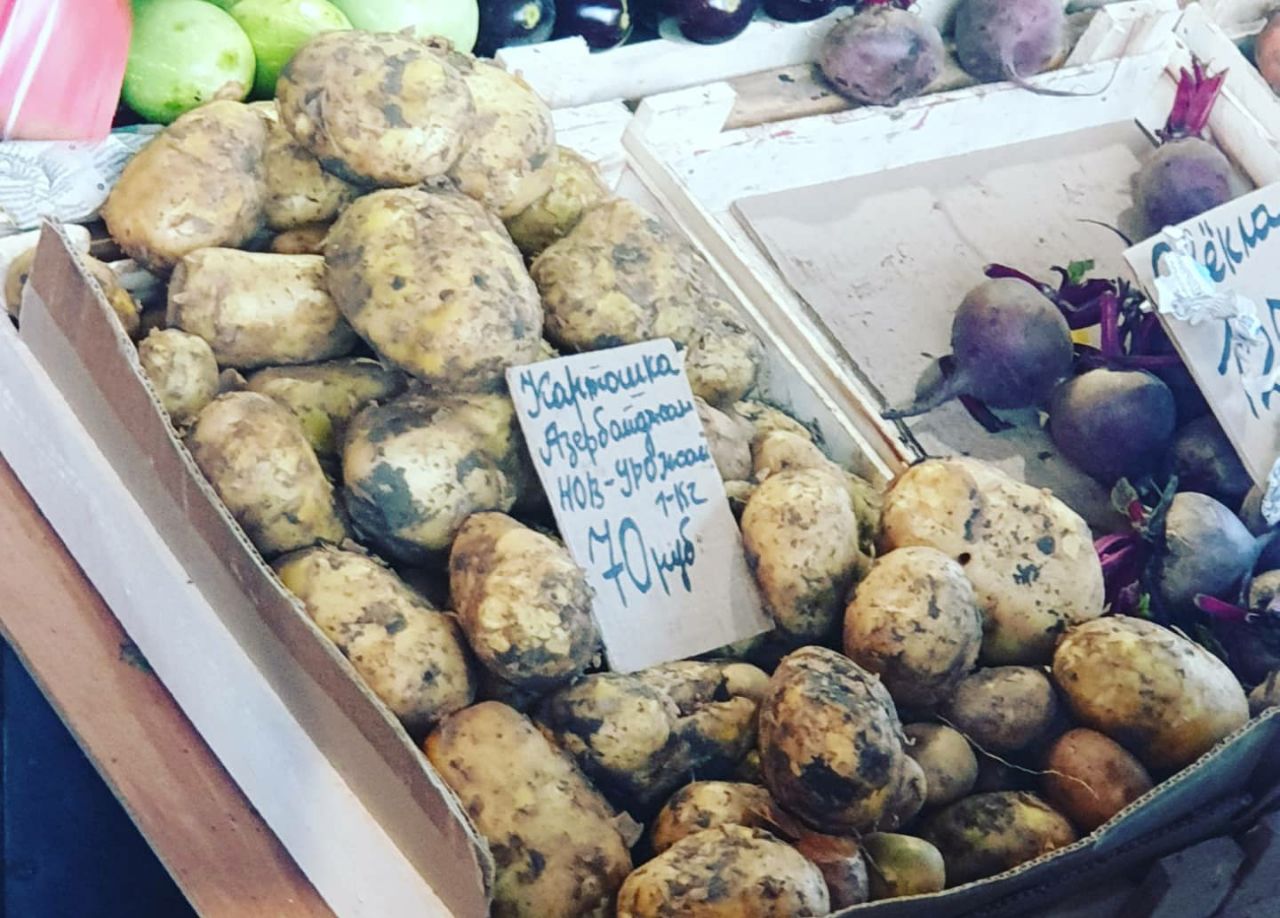 Картошка
Азербайджан
НОВ-Урожай
1-Кг
70 руб
Свёкла